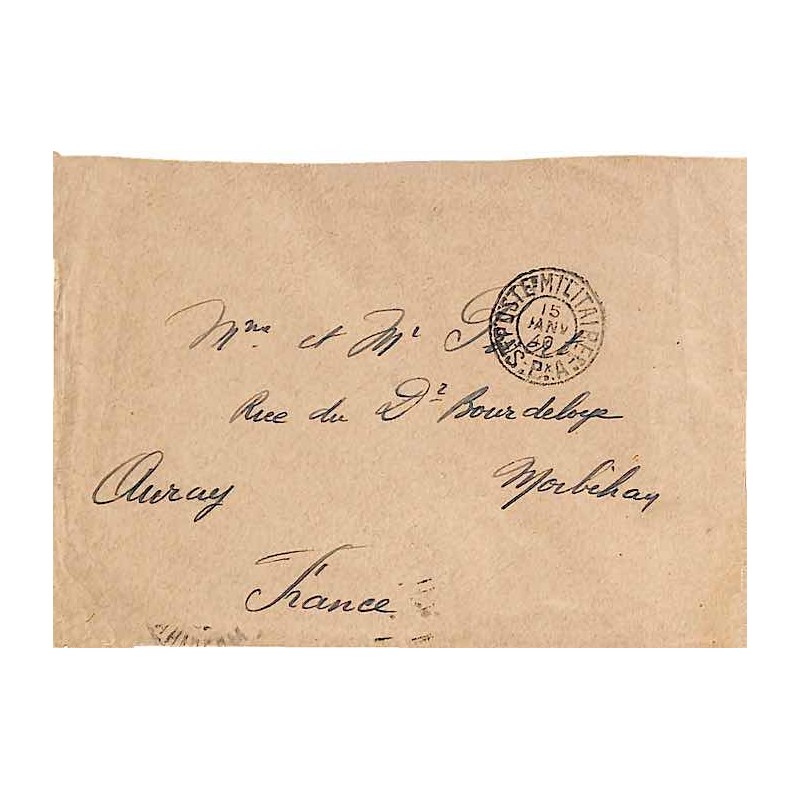 POSTE MILITAIRE
15
JANV
40
Mme et Mr
Rue du Dr Bourdeloye
Auray Morbihan
France